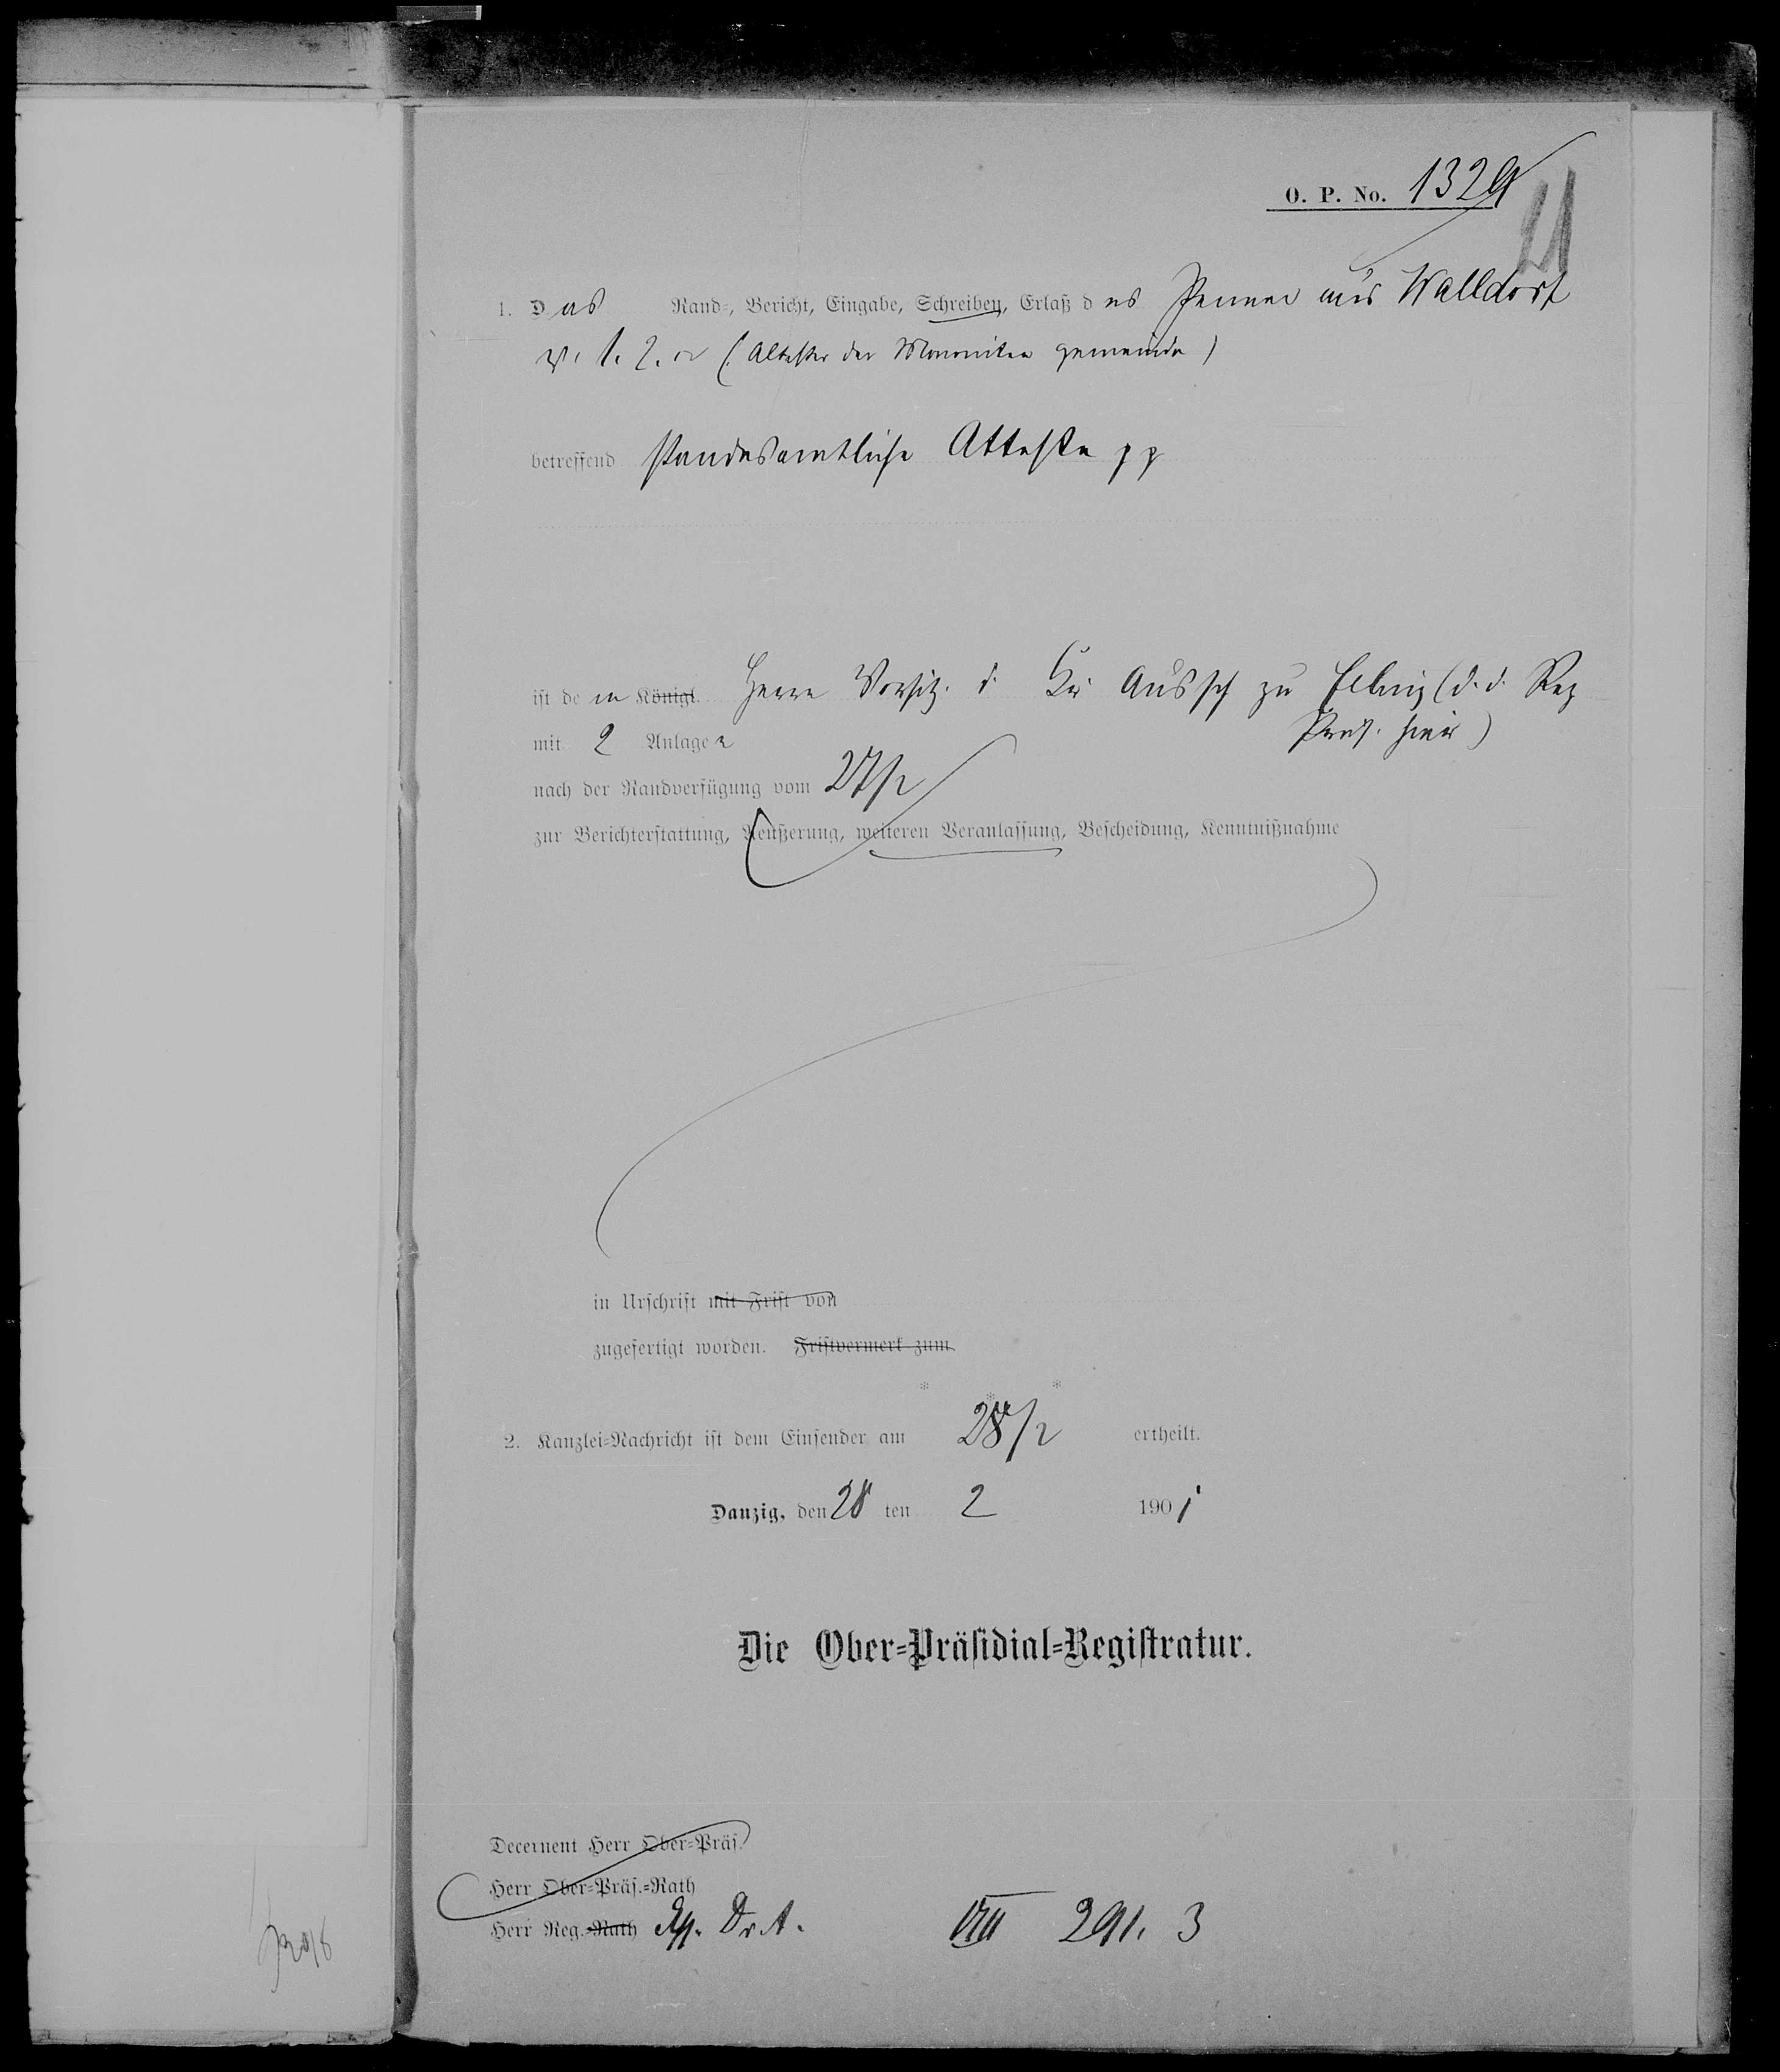 O. P. No. 1329
21
1. Das Rand-, Bericht, Eingabe, Schreiben, Erlaß des Penner aus Walldorf
v. 1. 2. cr (Altester der Mennoniten gemeinde)
betreffend standesamtliche Atteste pp
ist dem Königl. Herrn Vorsitz. d. Kr. Aussch zu Elbing (d. d. Reg
Präs. hier)
mit 2 Anlagen
nach der Randverfügung vom 27/2
zur Berichterstattung, Aeußerung, weiteren Veranlassung, Bescheidung, Kenntnißnahme
in Urschrift mit Frist von
zugefertigt worden. Fristvermerk zum
2. Kanzlei-Nachricht ist dem Einsender am 28/2 ertheilt.
Danzig, den 28 ten 2 1901
Die Ober-Präsidial-Registratur.
Decernent Herr Ober-Präs.
Herr Ober-Präs.-Rath
Herr Reg.-Rath Dr. A. VIII 291. 3